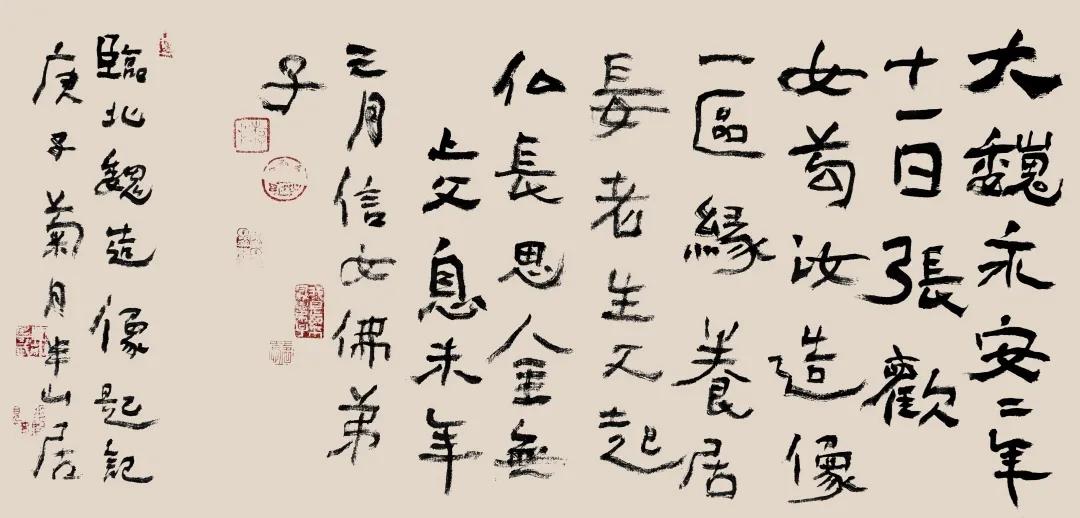 大魏永安二年
十一日張歡
女苟汝造像
一區緣養居
妟老生又起
仏長思金無
上父息未年
三月信女佛弟
子
臨北魏造像起記
庚子菊月半山居